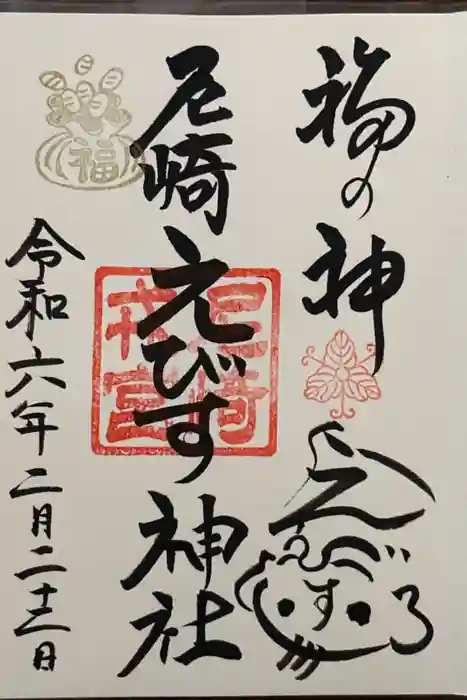 福の神
尼崎えびす神社
尼崎
戎宮
福
令和六年二月二十三日